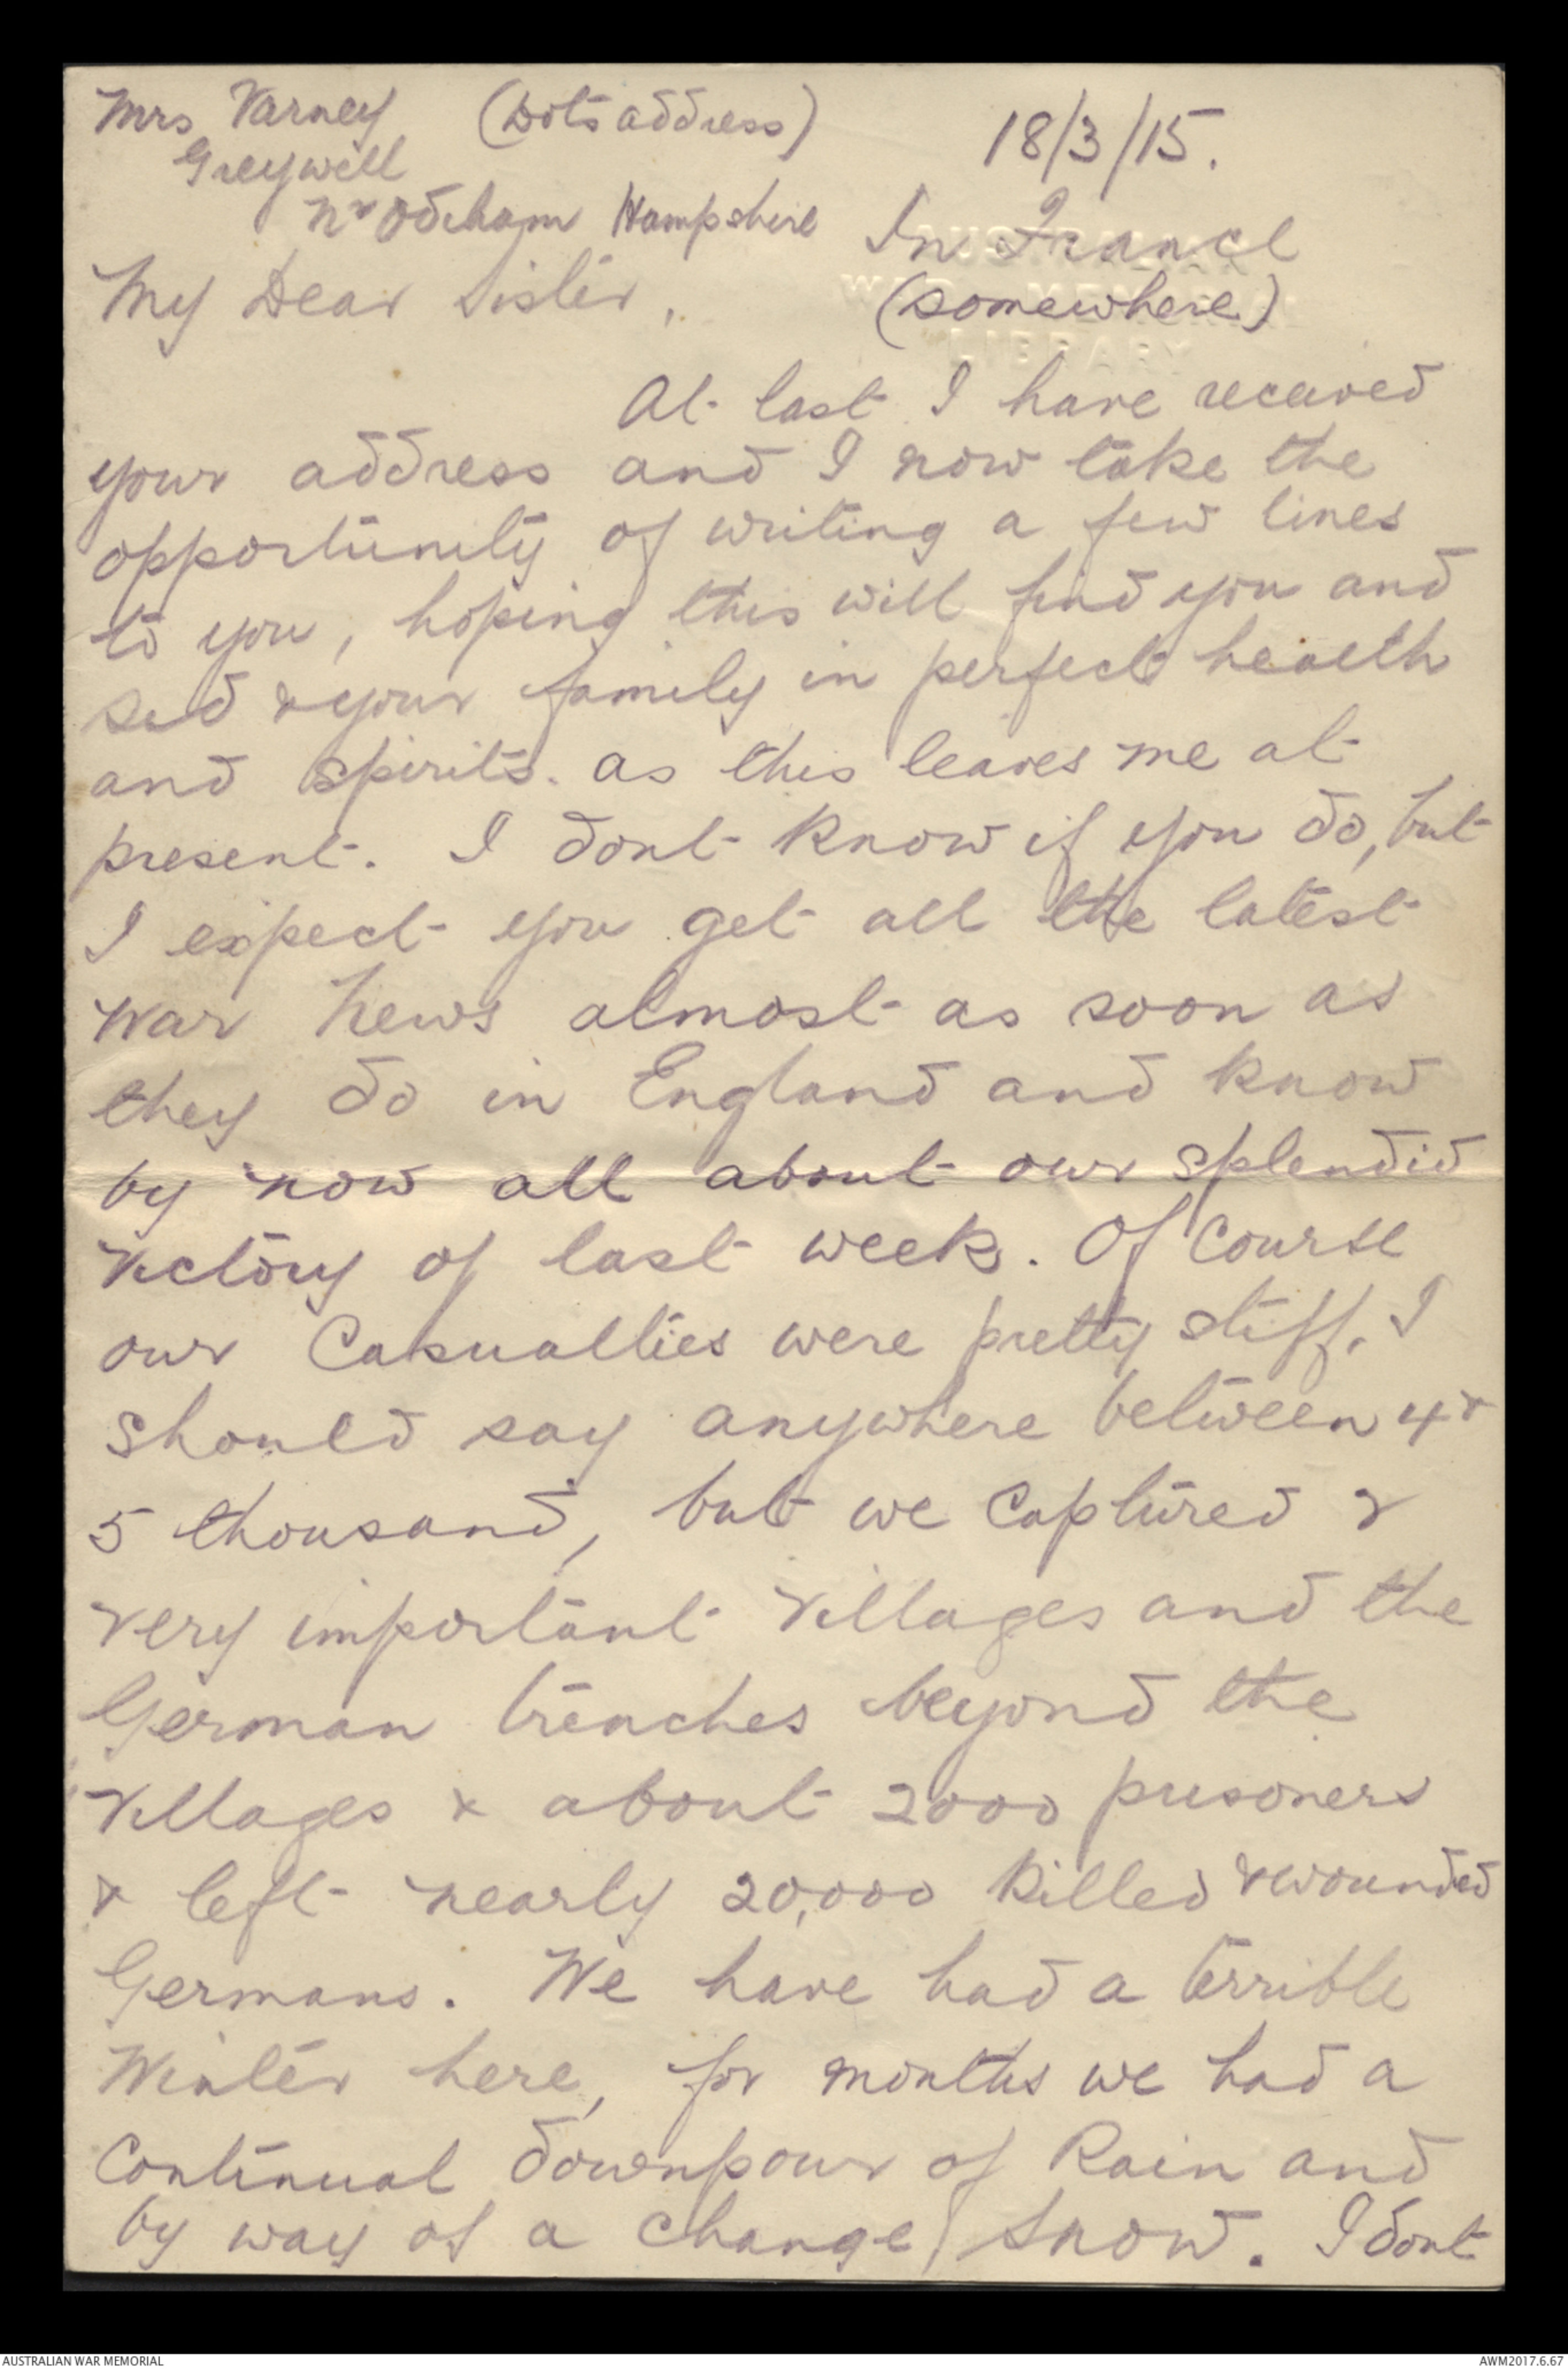 Mrs Varney (Dots address)
18/3/15.
Greywell
Nr Odiham Hampshire
In France
(somewhere)
My Dear Sister,
At last I have received
your address and I now take the
opportunity of writing a few lines
to you, hoping this will find you and
Sid & your family in perfect health
and spirits. as this leaves me at
present. I dont know if you do, but
I expect you get all the latest
War News almost as soon as
they do in England and know
by now all about our splendid
Victory of last week. Of Course
our Casualties were pretty stiff. I
should say anywhere between 4 &
5 thousand, but we Captured 2
very important Villages and the
German trenches beyond the
Villages & about 2000 prisoners
& left nearly 20,000 Killed & wounded
Germans. We have had a terrible
Winter here, for months we had a
Continual downpour of Rain and
by way of a change, Snow. I dont
AUSTRALIAN WAR MEMORIAL
AWM2017.6.67